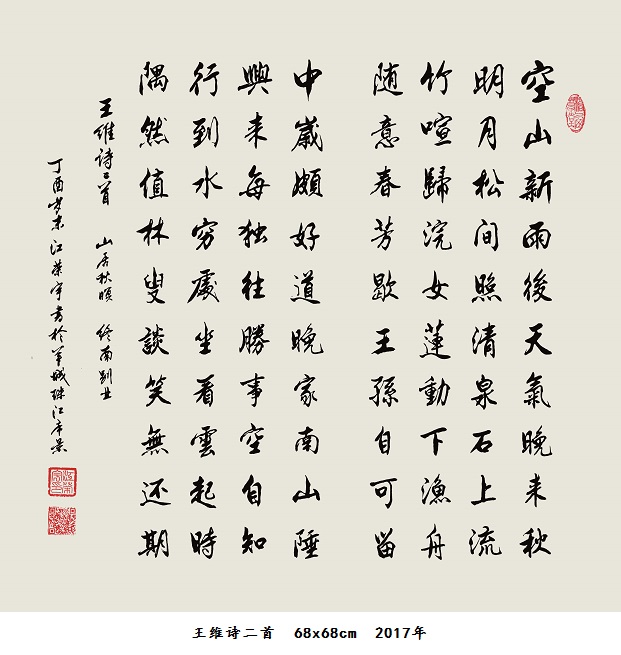 空山新雨後天氣晚来秋
明月松间照清泉石上流
竹喧歸浣女蓮動下漁舟
随意春芳歇王孫自可留
中歲頗好道晚家南山陲
興来每独往勝事空自知
行到水穷處坐看雲起時
隅然值林叟談笑無还期
王维诗二首 山居秋暝 终南别业
丁酉岁末江荣宇书於羊城珠江帝景
王维诗二首 68x68cm 2017年